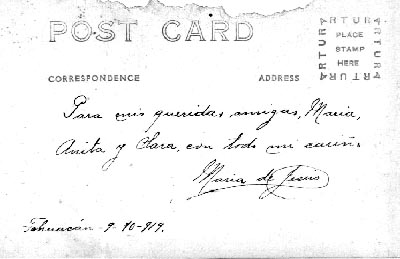 POST CARD
ARTURA
ARTURA
PLACE
STAMP
HERE
ARTURA
ARTURA
CORRESPONDENCE ADDRESS
Para mis queridas amigas, Maria,
Anita y Clara, con todo mi cariño.
Maria de Jesús
Tehuacán - 9-10-919.